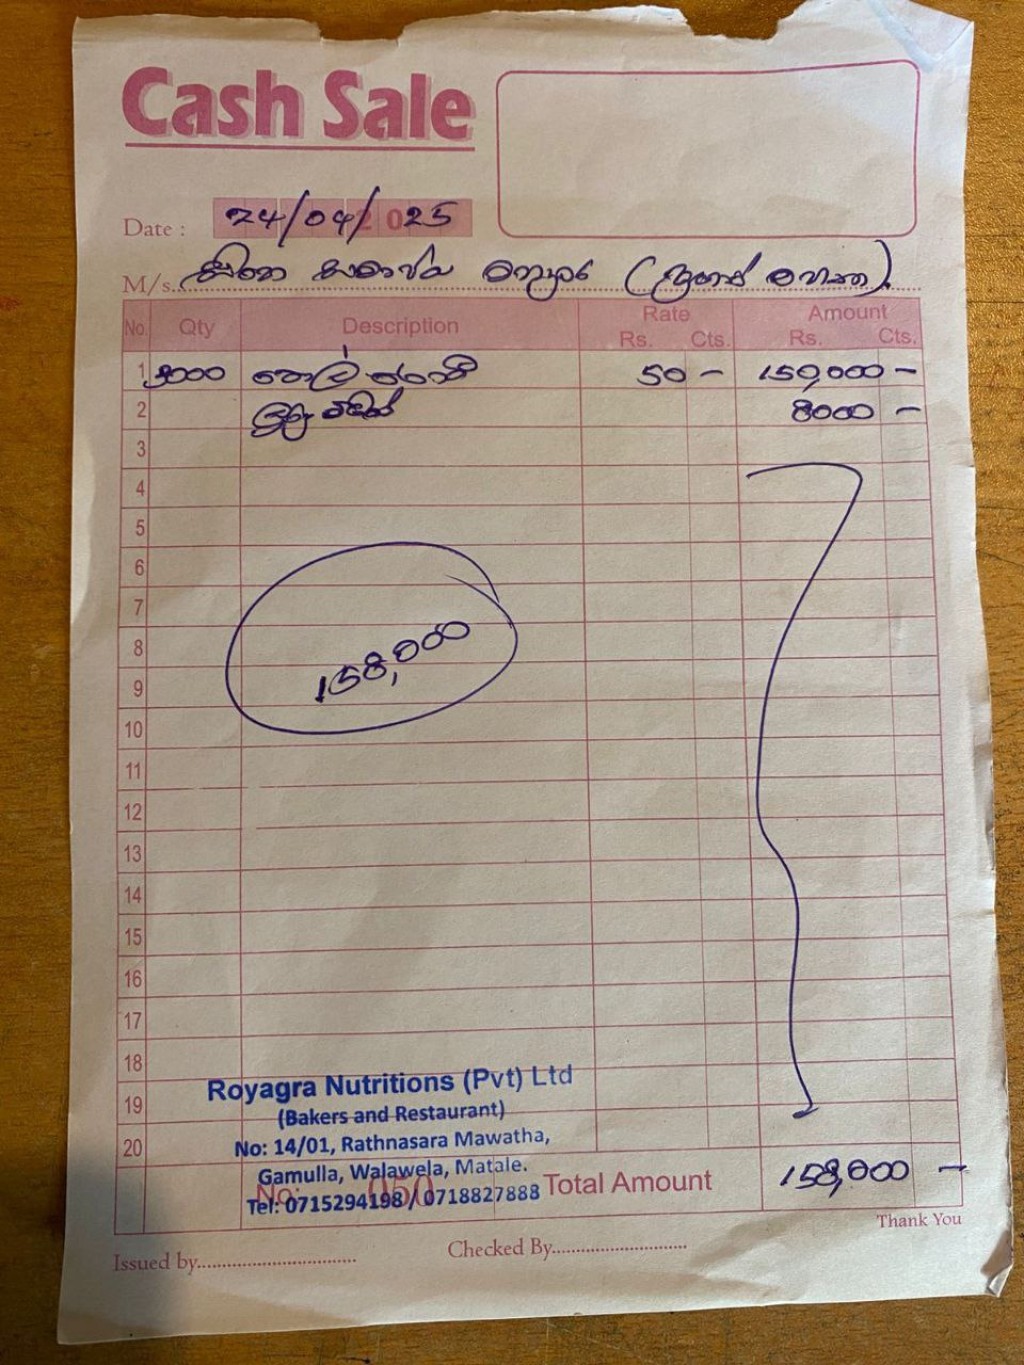 Cash Sale
Date : 24/04/2025
M/s. (මහත්තයා).
No. Qty Description Rate Rs. Cts. Amount Rs. Cts.
1 3000 50 – 150,000 –
2 8000 –
3
4
5
6
7
8
158,000
9
10
11
12
13
14
15
16
17
18
Royagra Nutritions (Pvt) Ltd
19
(Bakers and Restaurant)
20
No: 14/01, Rathnasara Mawatha,
Gamulla, Walawela, Matale.
No: 050 Total Amount 158,000 –
Tel: 0715294198 / 0718827888
Thank You
Issued by................................ Checked By............................